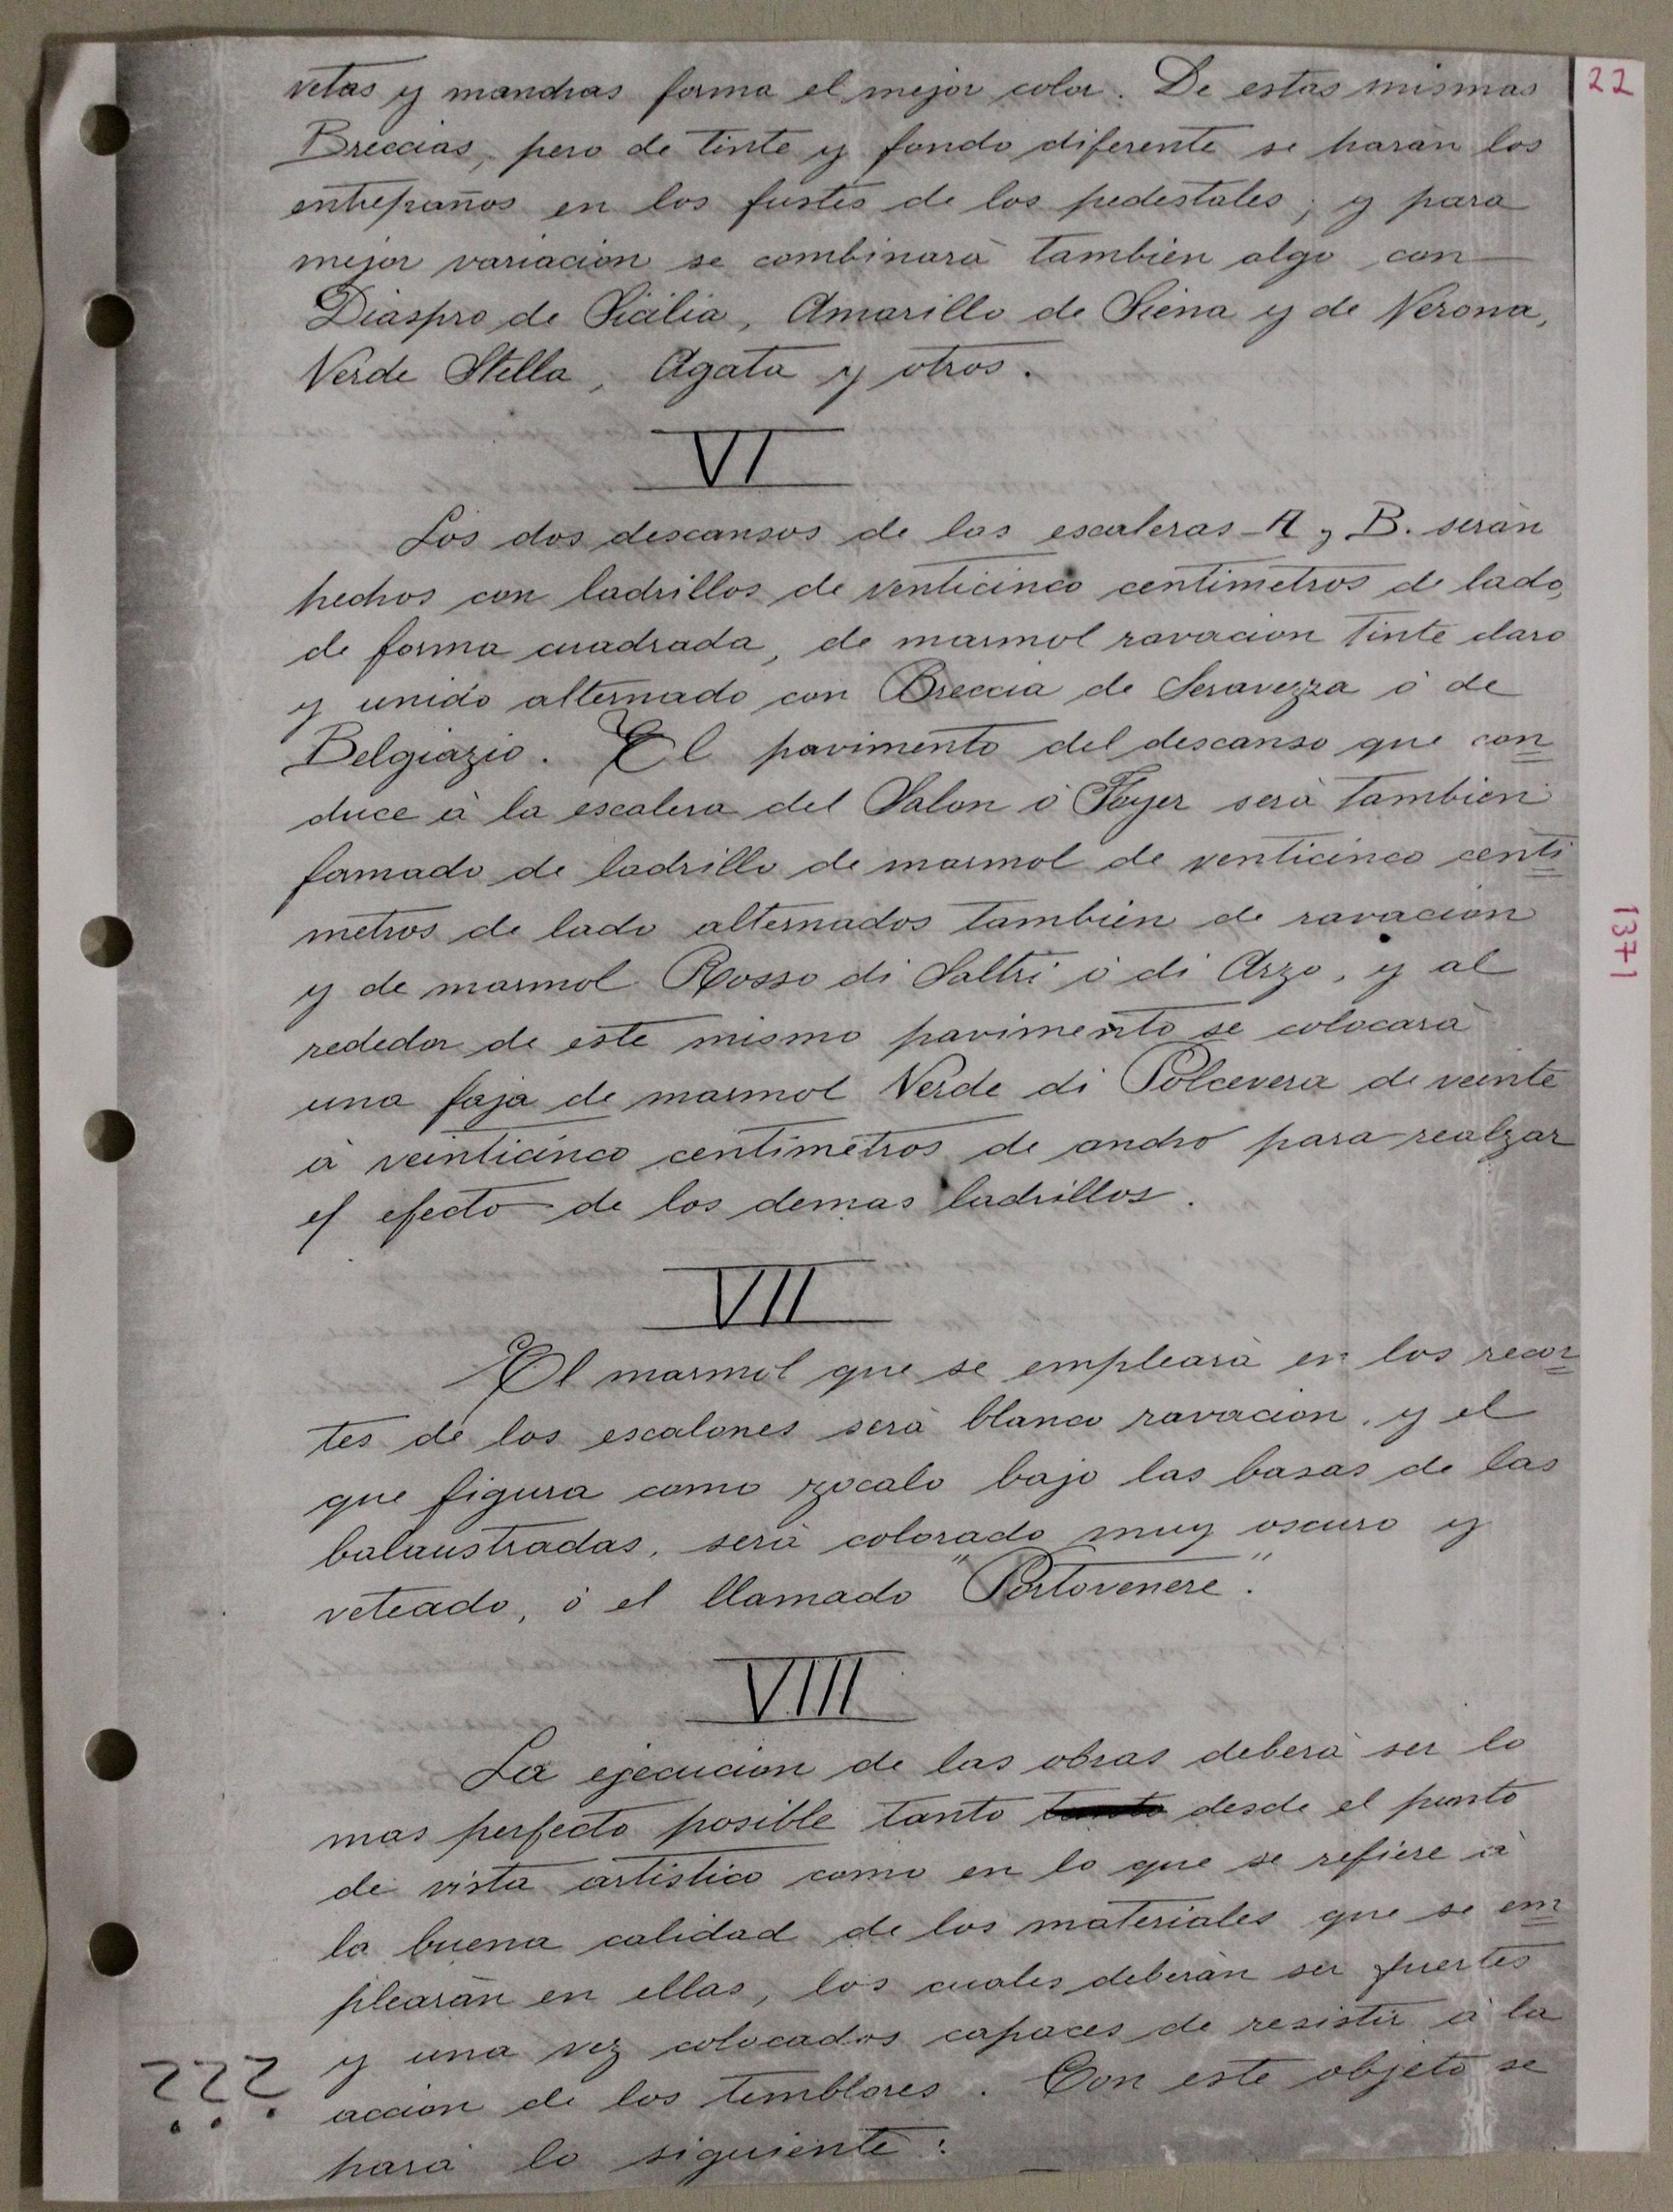 22
vetas y manchas forma el mejor color. De estas mismas
Breccias, pero de tinte y fondo diferente se haràn los
entrepaños en los fustes de los pedestales; y para
mejor variacion se combinarà tambien algo con
Diaspro de Sicilia, Amarillo de Siena y de Verona,
Verde Stella, Agata y otros.
VI
Los dos descansos de las escaleras A y B. seràn
hechos con ladrillos de venticinco centimetros de lado,
de forma cuadrada, de marmol ravacion tinte claro
y unido alternado con Breccia de Seravezza ò de
Belgiazio. El pavimento del descanso que con
duce à la escalera del Salon ò Foyer serà tambien
formado de ladrillo de marmol de venticinco centi
metros de lado alternados tambien de ravacion
y de marmol Rosso di Saltri ò di Arzo, y al
rededor de este mismo pavimento se colocarà
una faja de marmol Verde di Polcevera de veinte
à veinticinco centimetros de ancho para realzar
el efecto de los demas ladrillos.
1371
VII
El marmol que se emplearà en los recor
tes de los escalones serà blanco ravacion, y el
que figura como zocalo bajo las basas de las
balaustradas, serà colorado muy oscuro y
veteado, ò el llamado "Portovenere".
VIII
La ejecucion de las obras deberà ser lo
mas perfecto posible tanto tanto desde el punto
de vista artistico como en lo que se refiere à
la buena calidad de los materiales que se em
plearàn en ellas, los cuales deberàn ser fuertes
y una vez colocados capaces de resistir à la
accion de los temblores. Con este objeto se
harà lo siguiente:
???